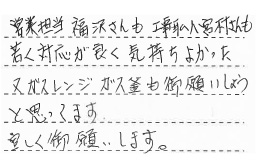 営業担当 福沢さんも 工事の人 宮村さんも
若く対応が良く気持ちよかった
又ガスレンジ ガス釜も御願いしよう
と思ってます
宜しく御願いします。